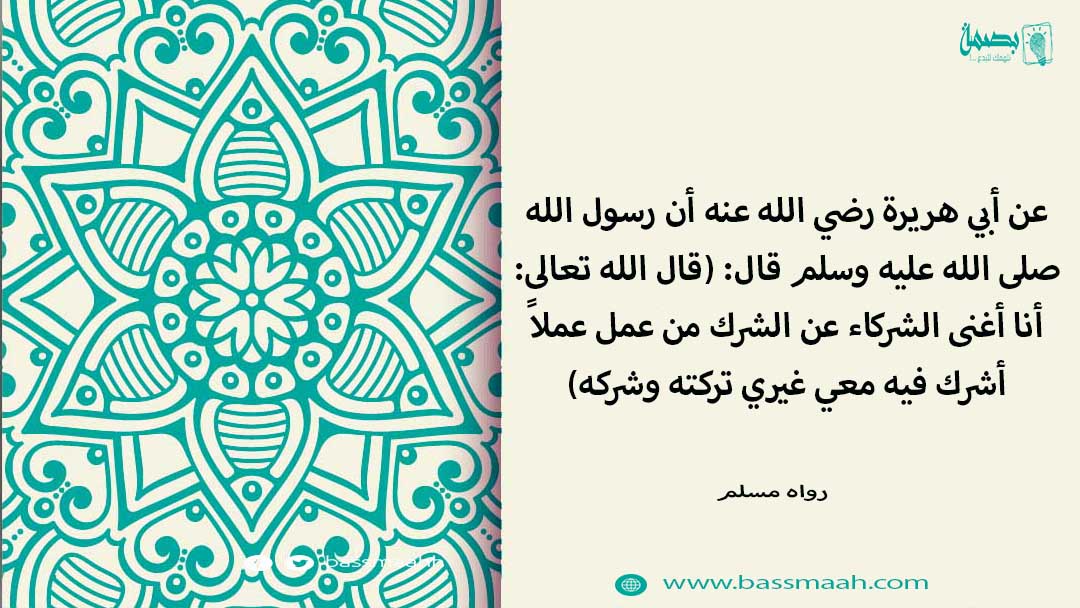 بصمة
نلهمك لتبدع ...!
عن أبي هريرة رضي الله عنه أن رسول الله
صلى الله عليه وسلم قال: (قال الله تعالى:
أنا أغنى الشركاء عن الشرك من عمل عملاً
أشرك فيه معي غيري تركته وشركه)
رواه مسلم
bassmaahh
www.bassmaah.com